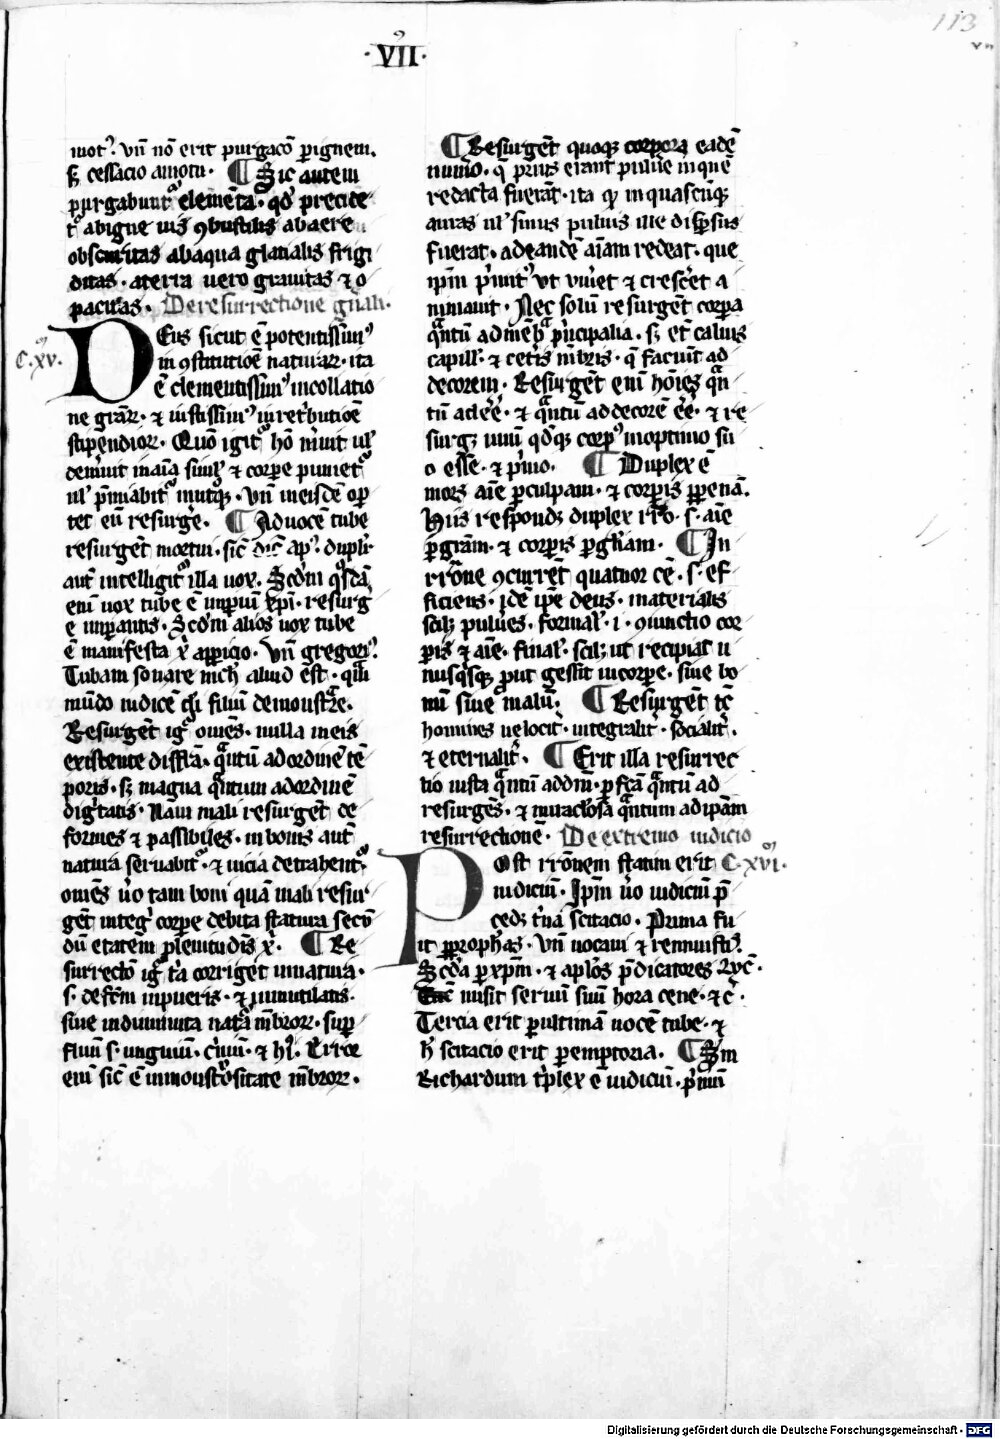 113
VII
·VII⁹·
mot⁹. vn̄ nō erit purgac̄o p̱ ignem.
sꝫ cessacio a motu. ¶ Sic autem
purgabuntᷣ elemēta. qd̓ precite-
tᷣ ab igne uis ꝯbustibilis ab aere
obscuritas ab aqua glacialis frigi
ditas. a terra uero grauitas ⁊ o
pacitas. De resurrectione gn̄ali.
C. xv⁹.
Deus sicut ē potentissim⁹
in ꝯstitutiōe naturaꝝ. ita
ē clementissim⁹ in collatio
ne gr̄aꝝ. ⁊ iustissim⁹ in ret̓butiōe
stipendioꝝ. Quō igitᷣ hō m̓uit ul̓
dem̓uit in aīa simul ⁊ corp̱e punietᷣ
ul̓ p̄miabitᷣ in utq̓ꝫ. vn̄ in eisdē opor
tet eū resurg̓e. ¶ Ad uocē tube
resurgēt mortui. sic̄ dic̄ ap̓. dupli-
aut̄ intelligitᷣ illa uox. Scd̓m q̓sdā
eni uox tube ē imp̱iū xp̄i. resurg̓
e imp̱antis. Scd̓m alios uox tube
ē manifesta xͥ app̱icio. Vn̄ gregori⁹.
Tubam sonare nich̓ aliud est. q̓
mūdo iudicē chͥ filiū demonstrare.
Resurgēt igͥ omēs. nulla in eis
existente diffr̄a. q̓ntū ad ordinē tē
poris. sꝫ magna q̓ntum ad ordinē
dig̓tatis. Nam mali resurgēt de
formes ⁊ passibiles. in bonis aut̄
natura seruabitᷣ. ⁊ uicia detrahentᷣ.
omēs ůo tam boni quā mali resur
gēt integ̓ corp̱e debita statura secū
dū etatem plenitudīs xͥ. ¶ Re
surrectō igͥ ... corriget in natura.
s. defc̄m in pueris. ⁊ in mutilatis.
siue in diminuta nat̓a mēbroꝝ. sup̱
fluū s. unguiū. c̓niū. ⁊ hͥ. Error
eni sic̄ ē in monst̓ositate mēbroꝝ.
¶ Resurgēt quoqꝫ corpora eadē
numō. q̄ prius erant puluͥe in quē
redacta fuerāt. ita qͥ in quascūqꝫ
auras ul̓ sinus puluis ille disp̱sus
fuerat. ad eandē aīam redeat. que
ip̄m p̓mit⁹ ut viuͥet ⁊ cresc̓et a
nimauit. Nec solū resurgēt corp̱a
q̓ntū ad mēbᷓ p̓ncipalia. sꝫ etͥ caluis
capillͥ. ⁊ cet̓is mēbris. q̄ faciūt ad
decorem. Resurgēt eni hōies q̓n
tū ad eē. ⁊ q̓ntū ad decorē eē. ⁊ re
surgꝫ unū qd̓qꝫ corp⁹ in optimo su
o esse. ⁊ p̓mo. ¶ Duplex ē
mors aīe p̱ culpam. ⁊ corp̱is p̱ penā.
Hiis respondꝫ duplex rr̄o. s. aīe
p̱ gr̄am. ⁊ corp̱is p̱ gl̓iam. ¶ In
rr̄ōne ꝯcurrēt quatuor cē. s. ef
ficiens. idē ip̄e deus. materialis
scilꝫ puluͥes. formal̓. i. ꝯiunctio cor
p̱is ⁊ aīe. final̓. scilꝫ ut recipiāt u
nusq̓sqꝫ p̱ut gessit in corp̱e. siue bo
nū siue malū. ¶ Resurgēt tc̄
homines uelocitͥ. integralitͥ. socialitͥ.
⁊ eternalitͥ. ¶ Erit illa resurrec
tio iusta q̓ntū ad dm̄. p̱fc̄a q̓ntū ad
resurgēs. ⁊ miraclosa q̓ntum ad ip̄am
resurrectionē. De extremo iudicio
C. xvi⁹.
Post rr̄ōnem statim erit
iudiciū. Ip̄m ůo iudiciū p̄
cedꝫ t̓na scitacio. Prima fu
it p̱ prophetas. vn̄ uocaui ⁊ rennuistis.
Scd̓a p̱ xp̄m. ⁊ apl̓os p̄dicatores Luc̄.
misit seruū suū hora cene. ⁊c̓.
Tercia erit p̱ ultimā uocē tube. ⁊
hͥ scitacio erit p̱emptoria. ¶ Sm̄
Richardum t̓plex ē iudiciū. p̓mū
Digitalisierung gefördert durch die Deutsche Forschungsgemeinschaft - DFG